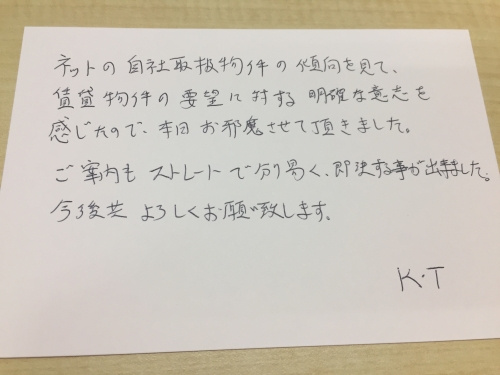 ネットの自社取扱物件の傾向を見て、
賃貸物件の要望に対する明確な意志を
感じたので、本日お邪魔させて頂きました。
ご案内もストレートで分り易く、即決する事が出来ました。
今後共よろしくお願い致します。
K・T